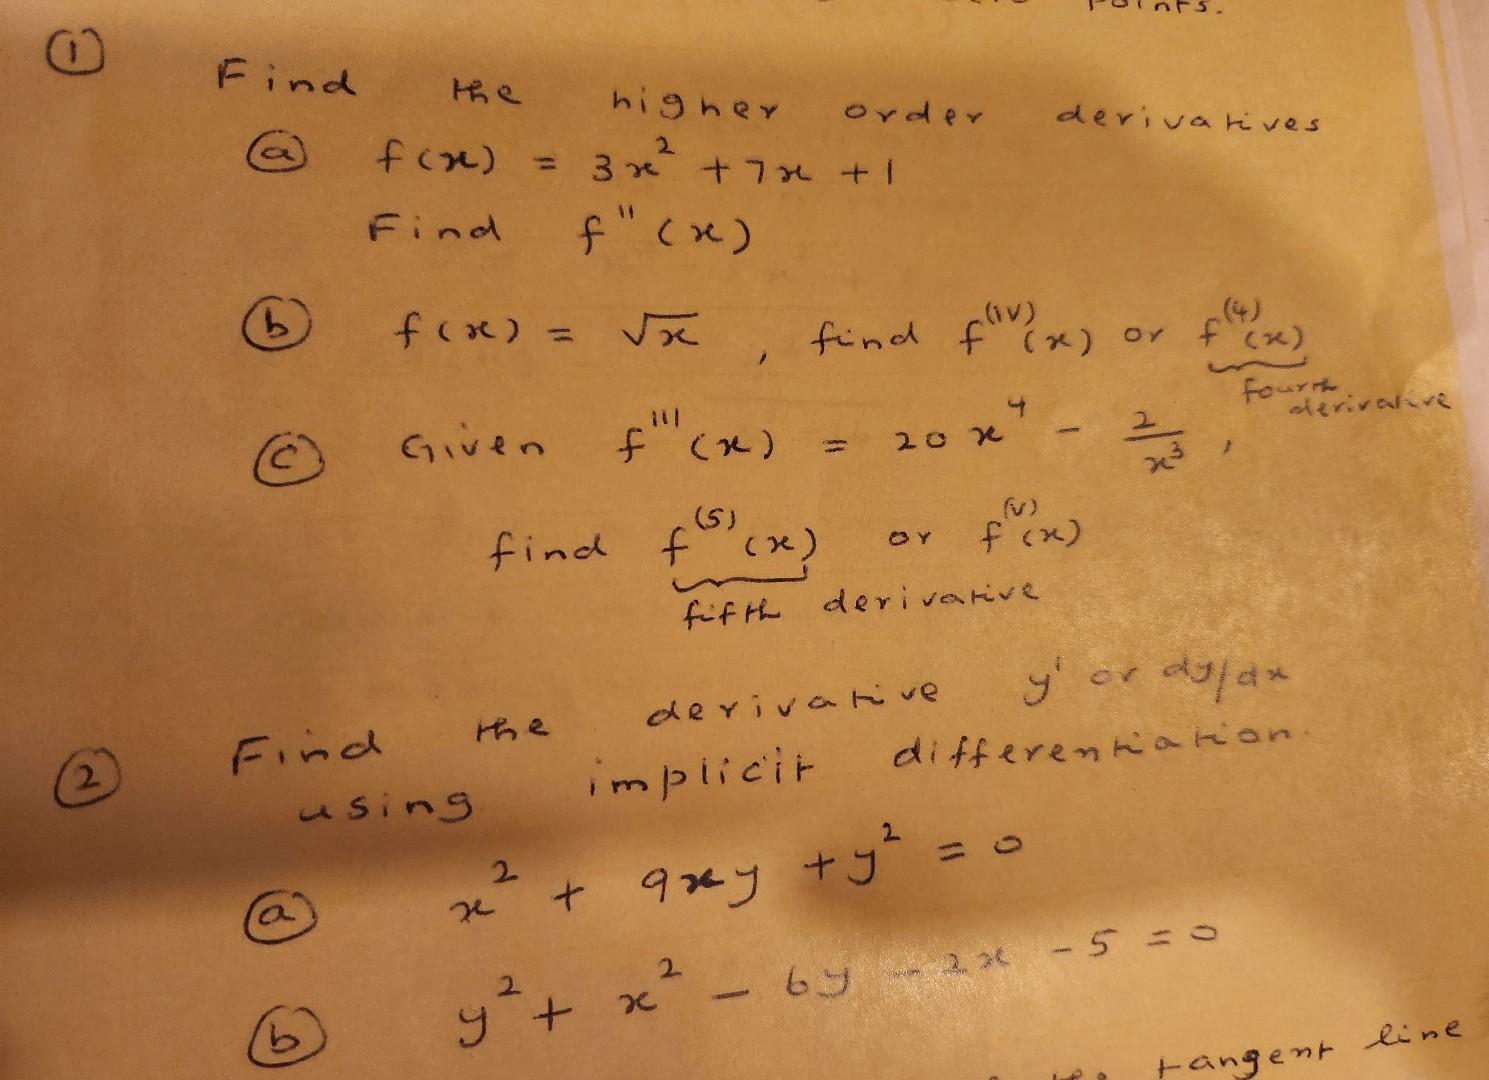 Points.
① Find the higher order derivatives
ⓐ f(x) = 3x² + 7x + 1
Find f''(x)
ⓑ f(x) = √x , find f⁽ⁱᵛ⁾(x) or f⁽⁴⁾(x)
fourth derivative
ⓒ Given f'''(x) = 20x⁴ - 2/x³ ,
find f⁽⁵⁾(x) or f⁽ᵛ⁾(x)
fifth derivative
② Find the derivative y' or dy/dx
using implicit differentiation.
ⓐ x² + 9xy + y² = 0
ⓑ y² + x² - 6y - 2x - 5 = 0
tangent line